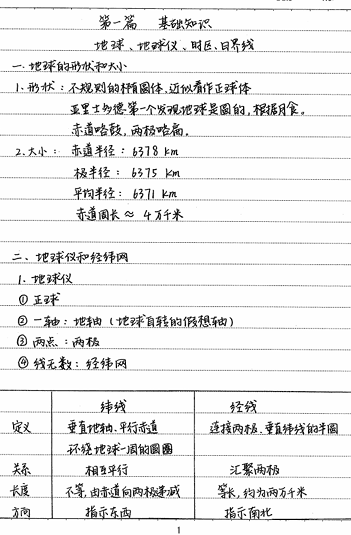 第一篇 基础知识
地球、地球仪、时区、日界线
一.地球的形状和大小
1.形状:不规则的椭圆体,近似看作正球体
亚里士多德第一个发现地球是圆的,根据月食。
赤道略鼓,两极略扁。
2.大小: 赤道半径: 6378 km
极半径: 6375 km
平均半径: 6371 km
赤道周长≈ 4万千米
二、地球仪和经纬网
1. 地球仪
① 正球
② 一轴:地轴(地球自转的假想轴)
③ 两点:两极
④ 线无数:经纬网
纬线 经线
定义 垂直地轴、平行赤道 连接两极、垂直纬线的半圆
环绕地球一周的圆圈
关系 相互平行 汇聚两极
长度 不等,由赤道向两极递减 等长,约为两万千米
方向 指示东西 指示南北
1